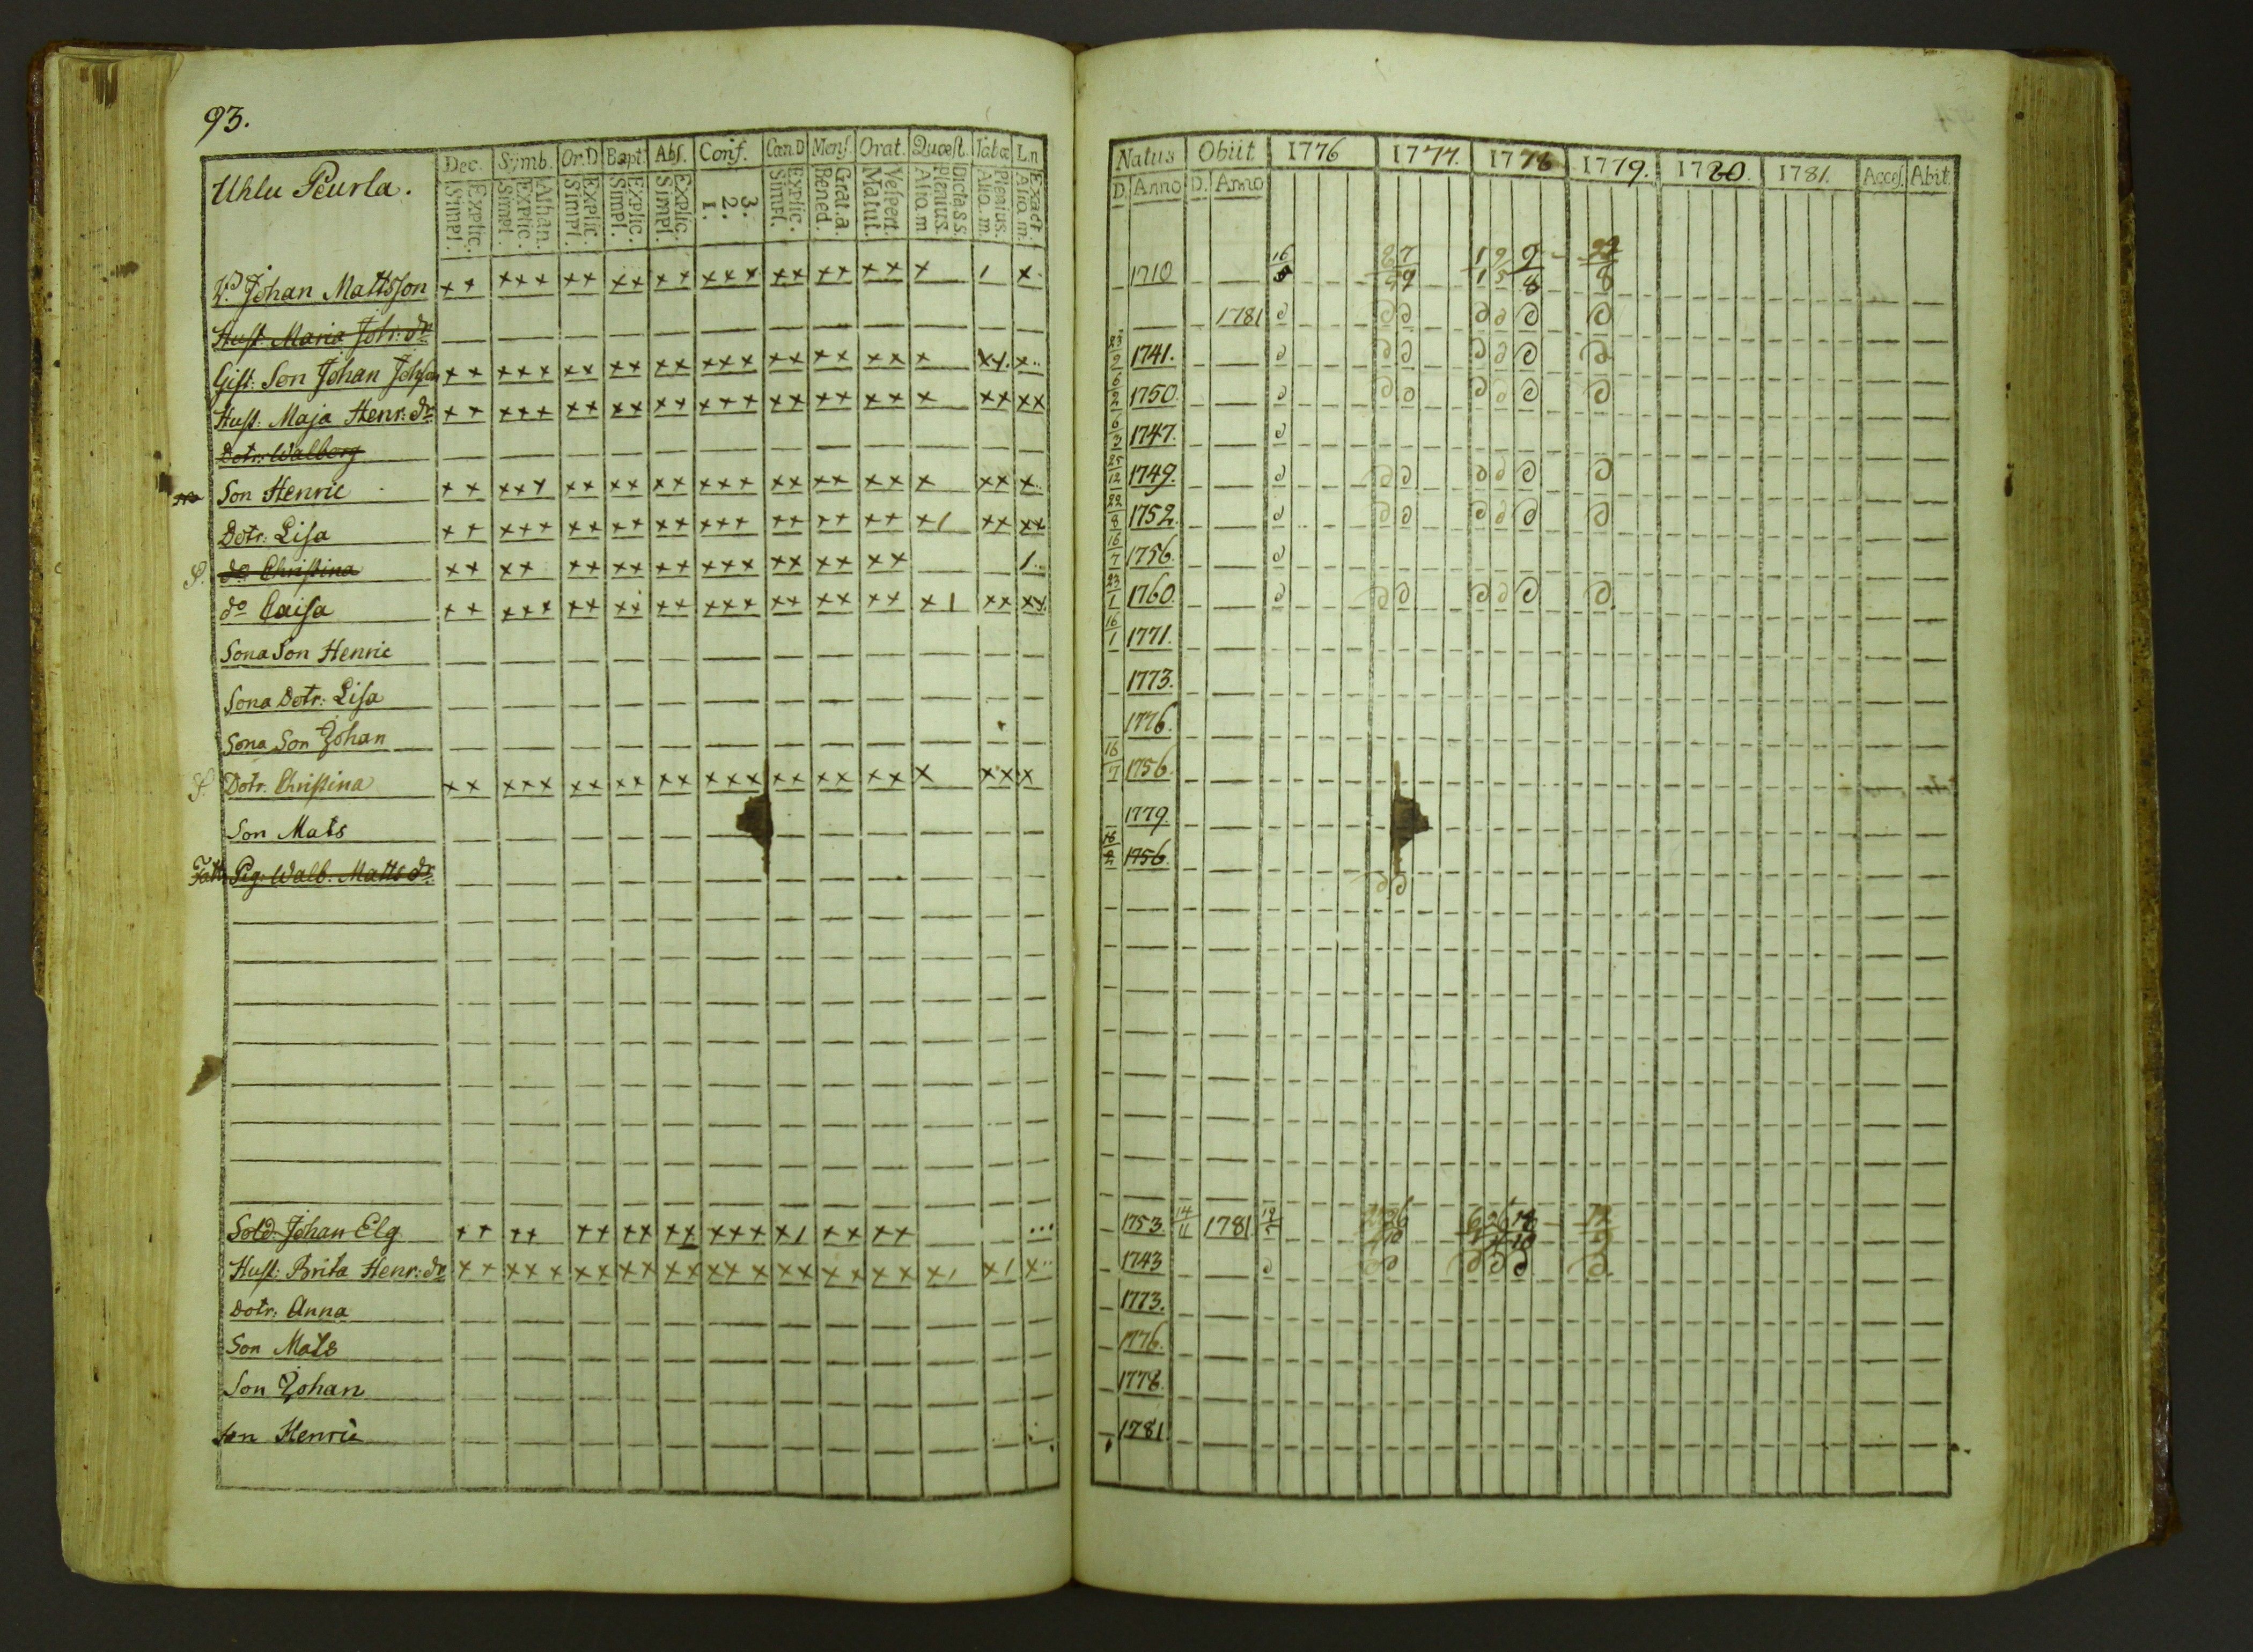 93.
Uhlu Peurla.
Dec. Symb. Or.D Bapt. Abs. Conf. Can.D Mens. Orat. Quæst. Tab.œ L.n
Explic. Simpl. Athan. Explic. Simpl. Explic. Simpl. Explic. Simpl. Explic. Simpl. 3. 2. 1. Explic. Simpl. Grat.a. Bened. Vespert. Matut. Dicta S.S. Plenius. Alio.m Plenius. Alio.m. Exact. Alio.m.
Natus Obiit 1776 1777. 1778 1779. 1780. 1781. Acces. Abit
D. Anno D. Anno
Johan Mattsson ×× ××× ×× ×× ×× ××× ×× ×× ×× × 1 × 1710 16
Hust. Maria Joh: dr 1781
Gift: Son Johan Johsson ×× ××× ×× ×× ×× ××× ×× ×× ×× × ×× × 23/9 1741.
Hust: Maja Henr: dr ×× ××× ×× ×× ×× ××× ×× ×× ×× × ×× ×× 6/2 1750.
Dotr: Walborg 6/3 1747.
Son Henric ×× ××× ×× ×× ×× ××× ×× ×× ×× × ×× × 25/12 1749.
Dotr: Lisa ×× ××× ×× ×× ×× ××× ×× ×× ×× ×1 ×× ×× 22/8 1752.
do Christina ×× ×× ×× ×× ×× ××× ×× ×× ×× 1 16/7 1756.
do Caisa ×× ××× ×× ×× ×× ××× ×× ×× ×× ×1 ×× ×× 23/1 1760
Sona Son Henric 16/1 1771.
Sona Dotr: Lisa 1773.
Sona Son Johan 1776.
Dotr. Christina ×× ××× ×× ×× ×× ××× ×× ×× ×× × ×× × 16/7 1756.
Son Mats 1779.
Pig: Walb. Matts dr 1756.
Sold. Johan Elg ×× ×× ×× ×× ×× ××× ×1 ×× ×× 1753. 14/11 1781
Hust: Brita Henr: dr ×× ××× ×× ×× ×× ××× ×× ×× ×× ×1 ×1 × 1743
Dotr: Anna 1773.
Son Mats 1776.
Son Johan 1778.
Son Henric 1781